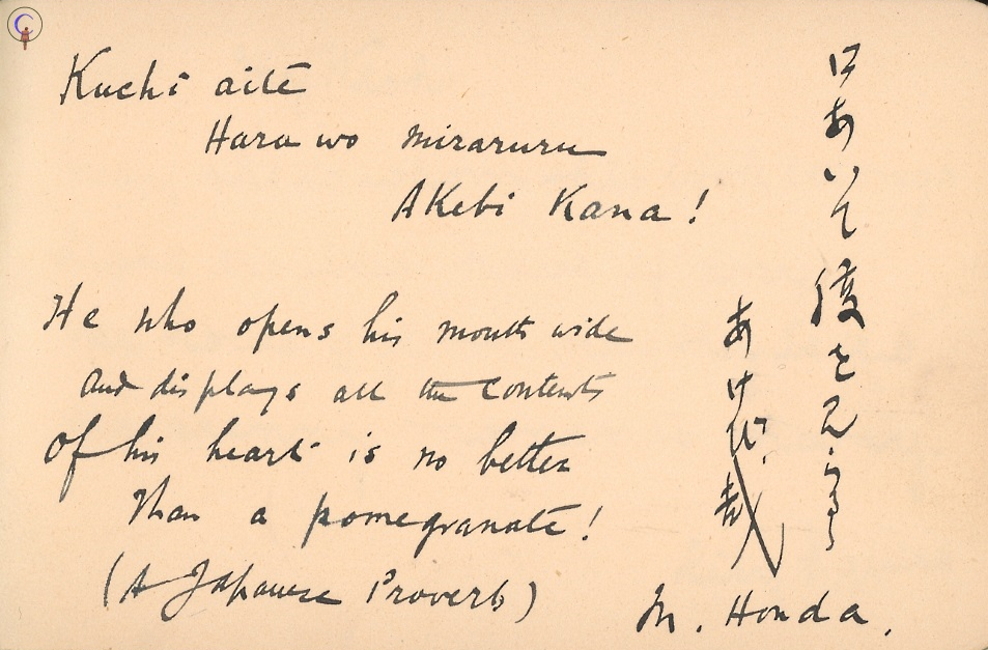 Kuchi aite
Hara wo miraruru
Akebi Kana!
He who opens his mouth wide
and displays all the contents
Of his heart is no better
Than a pomegranate!
(A Japanese Proverb)
口あいて腹を見らるゝ
あけび哉
M. Honda.